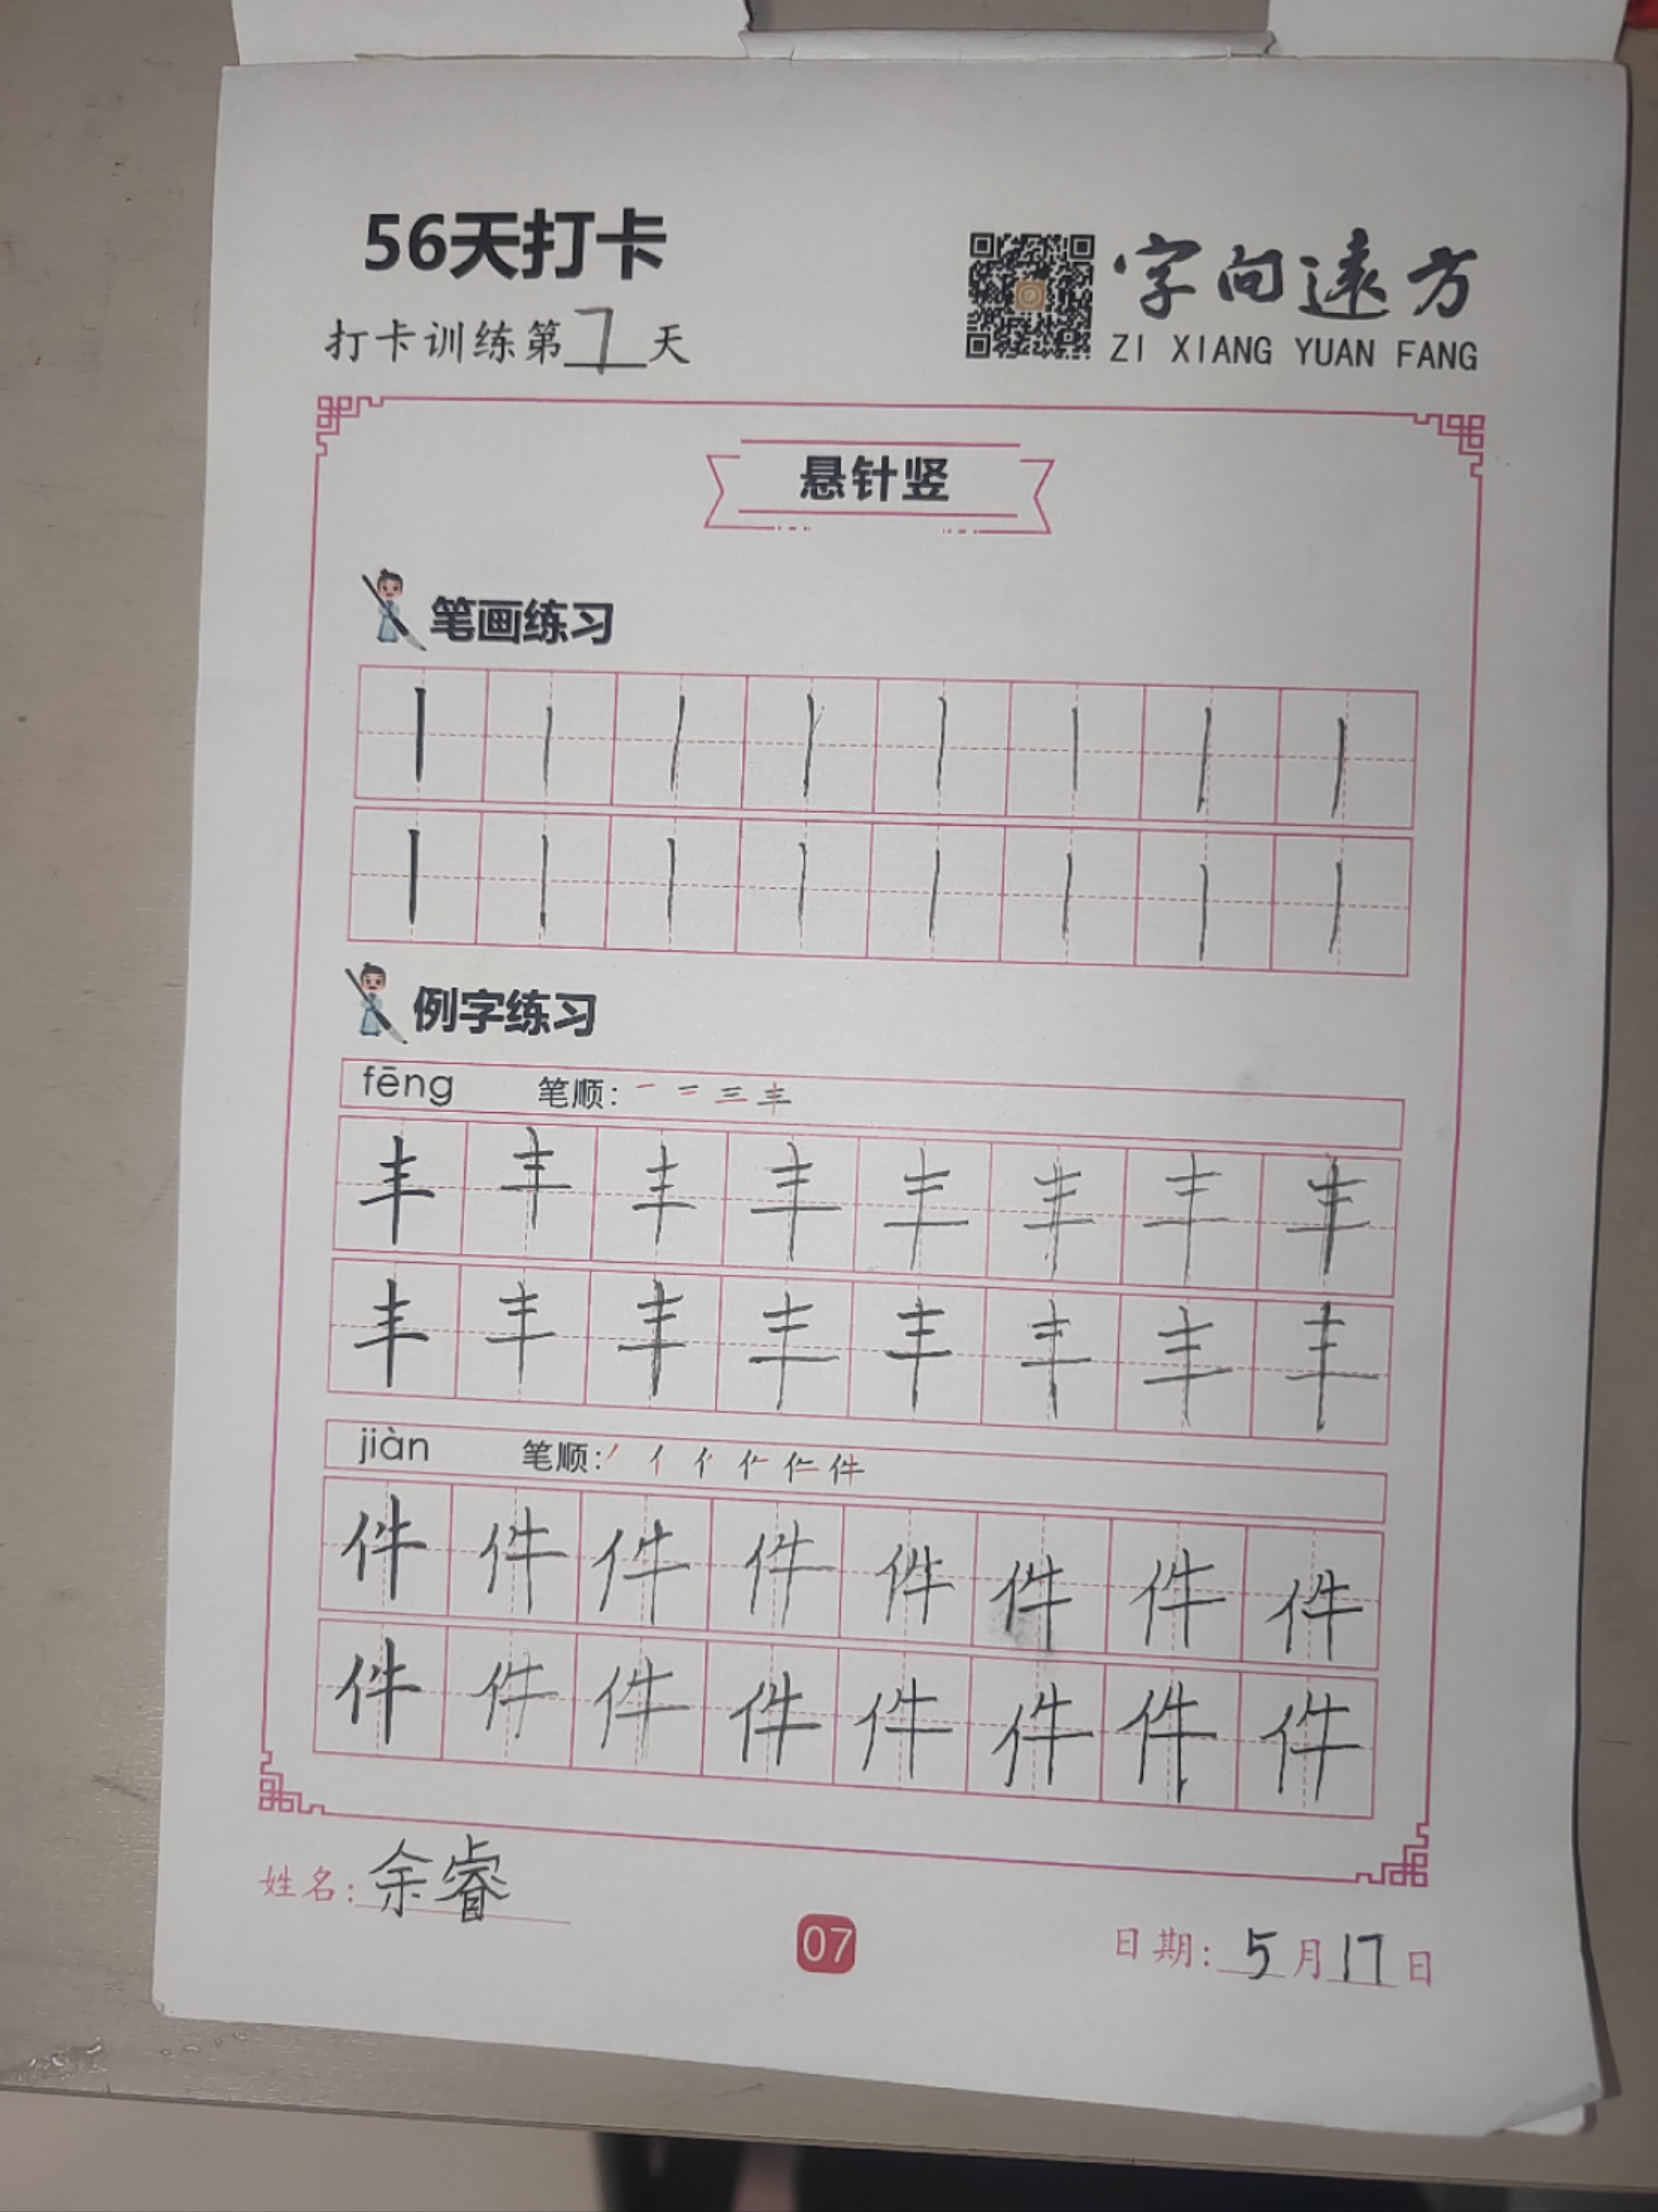 56天打卡
打卡训练第7天
字向遠方
ZI XIANG YUAN FANG
悬针竖
笔画练习
丨 丨 丨 丨 丨 丨 丨 丨
丨 丨 丨 丨 丨 丨 丨 丨
例字练习
fēng 笔顺: 一 二 三 丰
丰 丰 丰 丰 丰 丰 丰 丰
丰 丰 丰 丰 丰 丰 丰 丰
jiàn 笔顺: 丿 亻 件
件 件 件 件 件 件 件 件
件 件 件 件 件 件 件 件
姓名: 余睿
07
日期: 5月17日